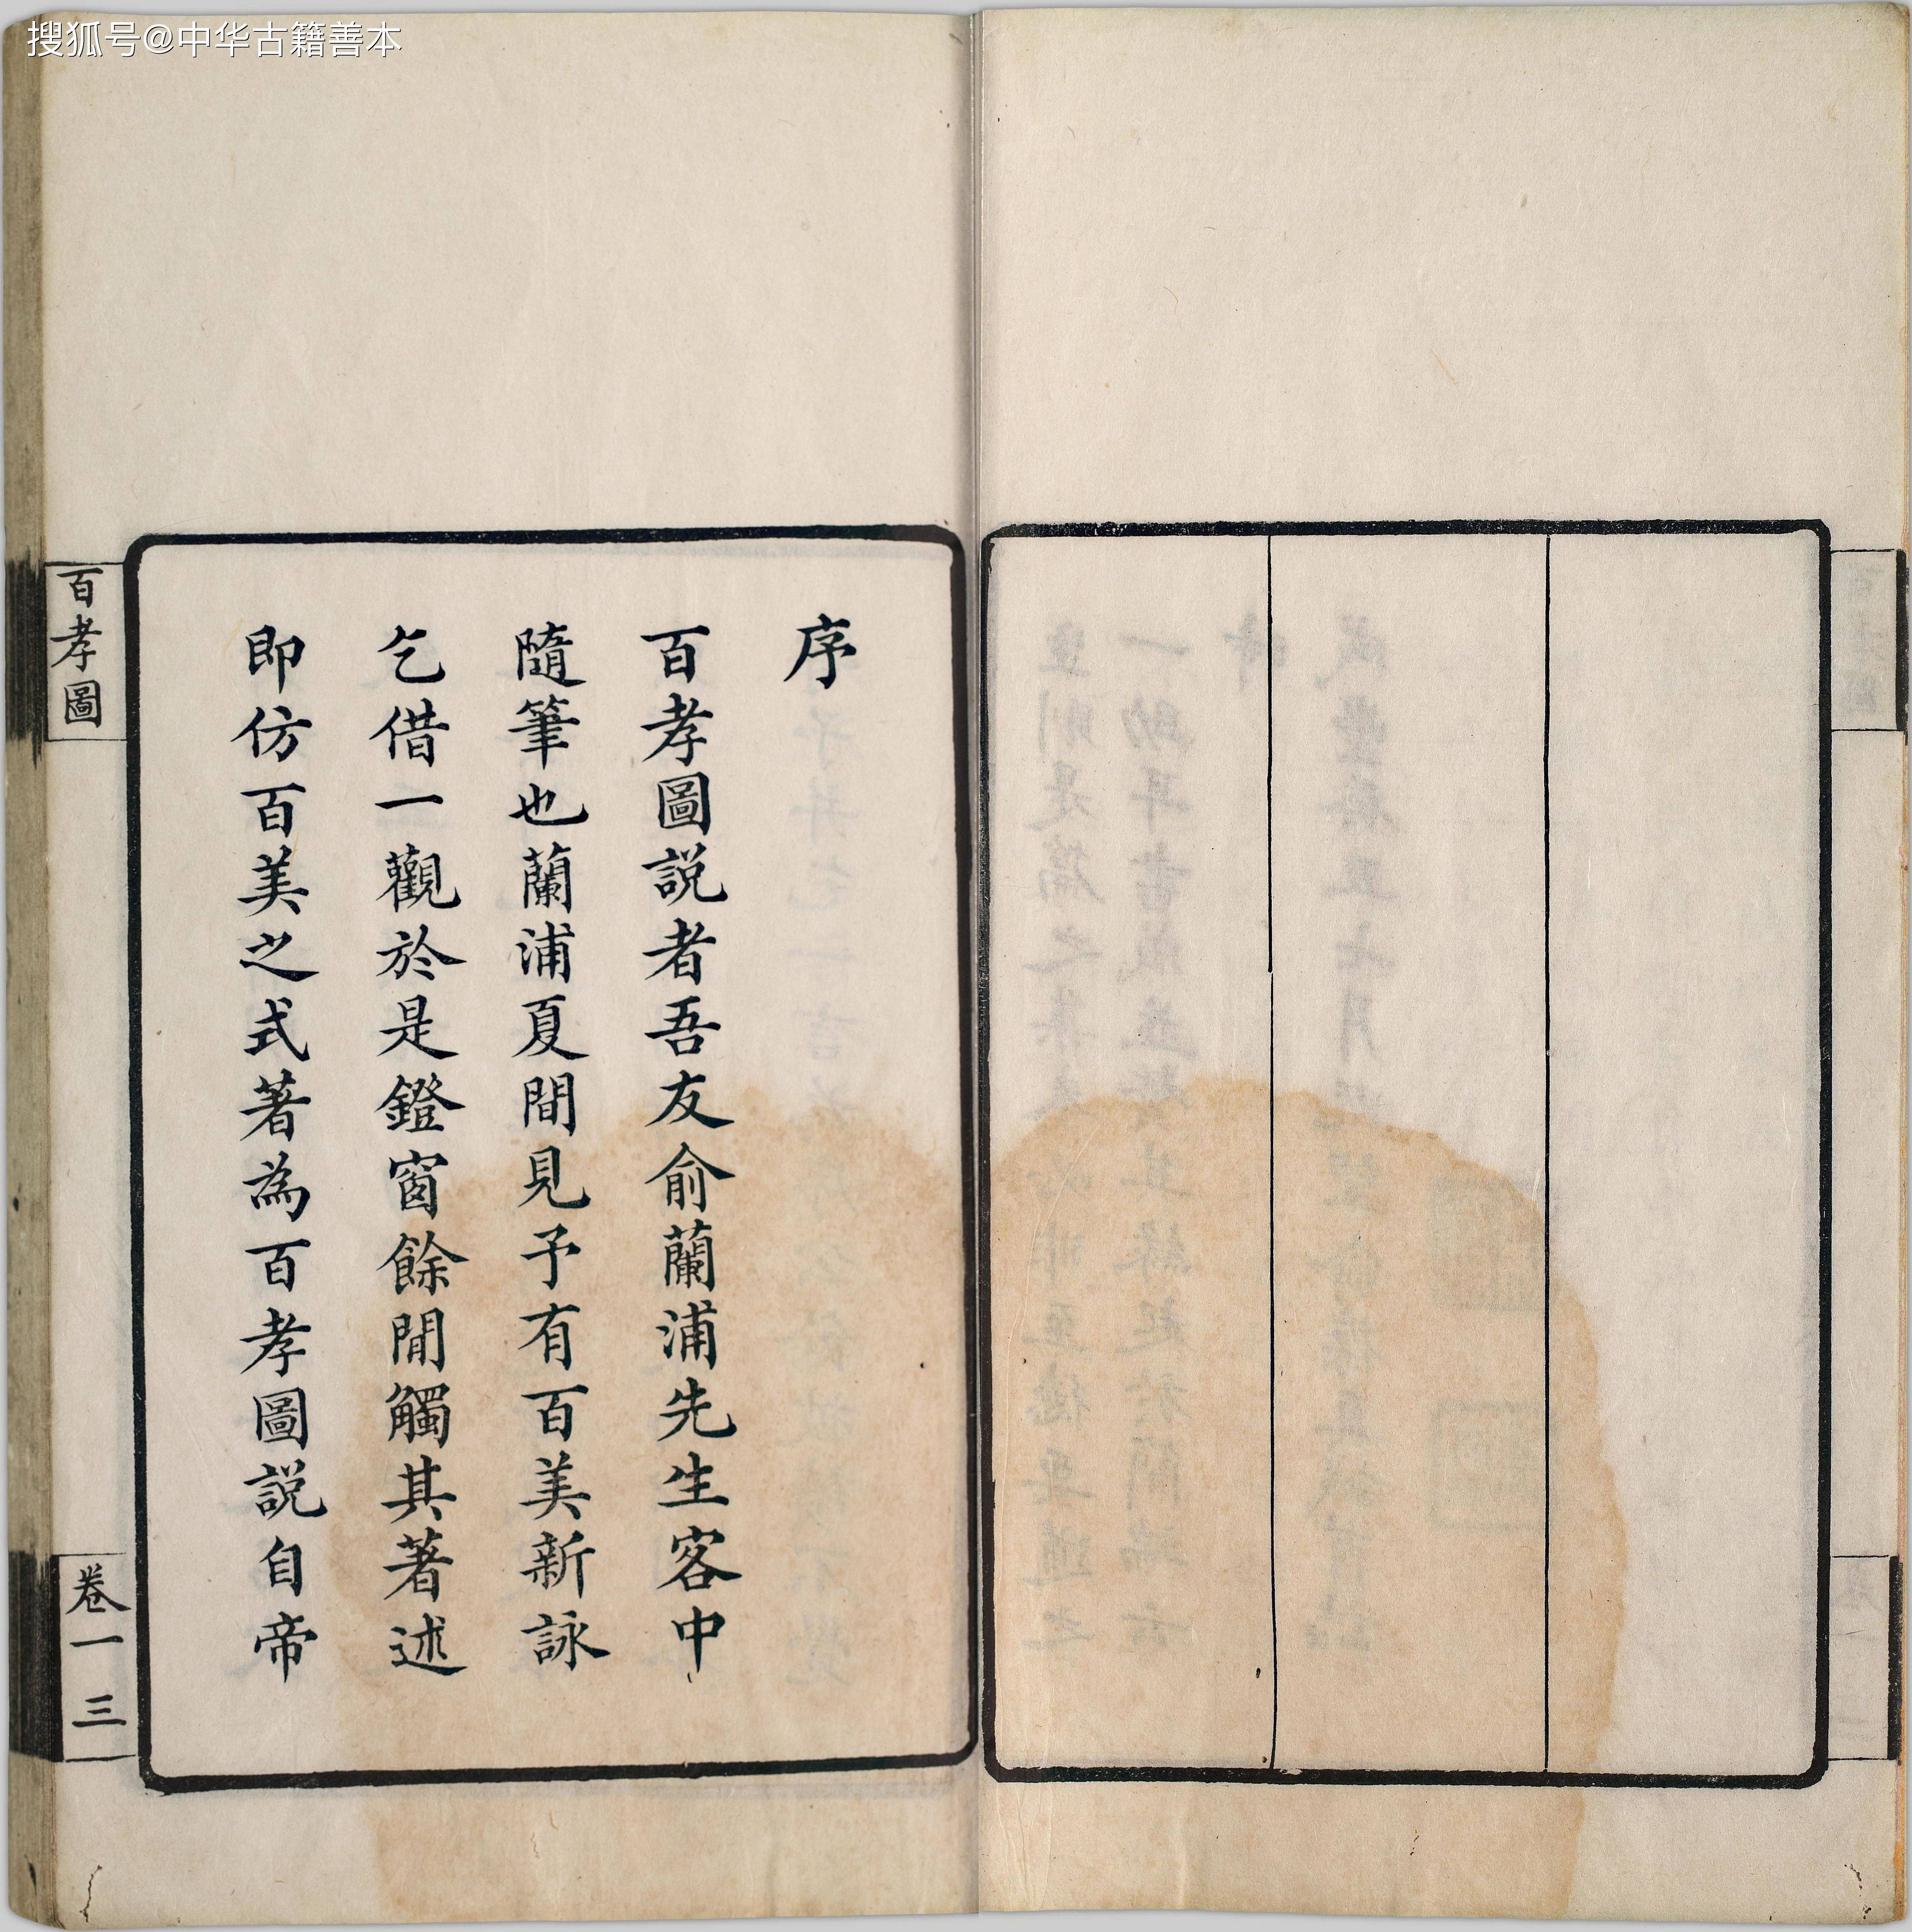 搜狐号@中华古籍善本
序
百孝圖説者吾友俞蘭浦先生客中
隨筆也蘭浦夏間見予有百美新詠
乞借一觀於是鐙窗餘閒觸其著述
即仿百美之式著為百孝圖説自帝
百孝圖
卷一 三